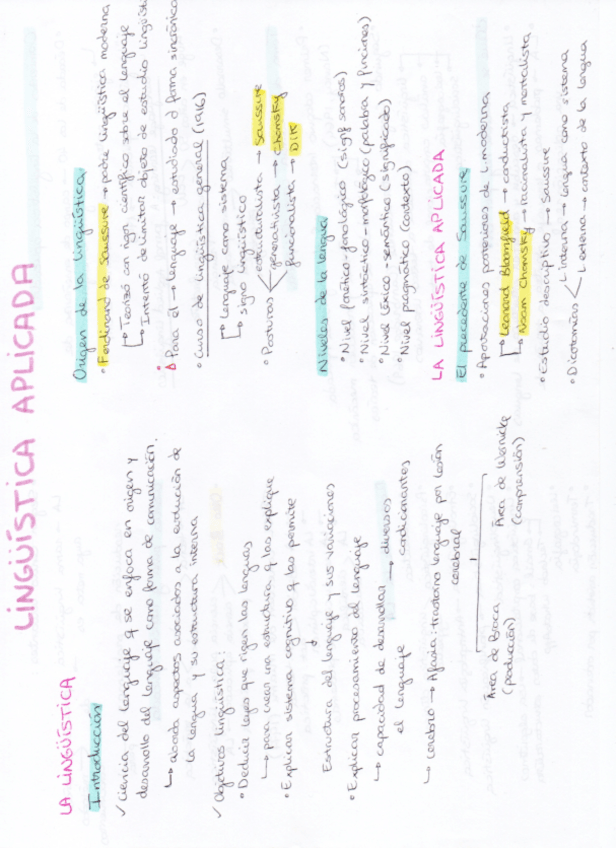 LINGÜÍSTICA APLICADA
LA LINGÜÍSTICA
Introducción
✓ Ciencia del lenguaje q se enfoca en origen y
desarrollo del lenguaje como forma de comunicación.
↳ aborda aspectos asociados a la evolución de
la lengua y su estructura interna
✓ Objetivos lingüística:
• Deducir leyes que rigen las lenguas
↳ para crear una estructura q las explique
• Explicar sistema cognitivo q las permite
↓
Estructura del lenguaje y sus variaciones
• Explicar procesamiento del lenguaje
↳ capacidad de desarrollar → diversos
el lenguaje condicionantes
↳ cerebro → Afasia: trastorno lenguaje por lesión
cerebral
Área de Broca Área de Wernicke
(producción) (comprensión)
Origen de la lingüística
• Ferdinand de Saussure → padre lingüística moderna
↳ Teorizó con rigor científico sobre el lenguaje
↳ Intentó delimitar objeto de estudio lingüíst
Para él → lenguaje → estudiado d forma sincrónica
• Curso de lingüística general (1916)
↳ lenguaje como sistema
↳ signo lingüístico
• Posturas estructuralista → Saussure
generativista → Chomsky
funcionalista → Dik
Niveles de la lengua
• Nivel fonético-fonológico (signif sonoros)
• Nivel sintáctico-morfológico (palabra y funciones)
• Nivel léxico-semántico (significado)
• Nivel pragmático (contexto)
LA LINGÜÍSTICA APLICADA
El precedente de Saussure
• Aportaciones posteriores de L. moderna
↳ Leonard Bloomfield → conductista
↳ Noam Chomsky → racionalista y mentalista
• Estudio descriptivo → Saussure
• Dicotomías interna → lengua como sistema
L externa → contexto de la lengua